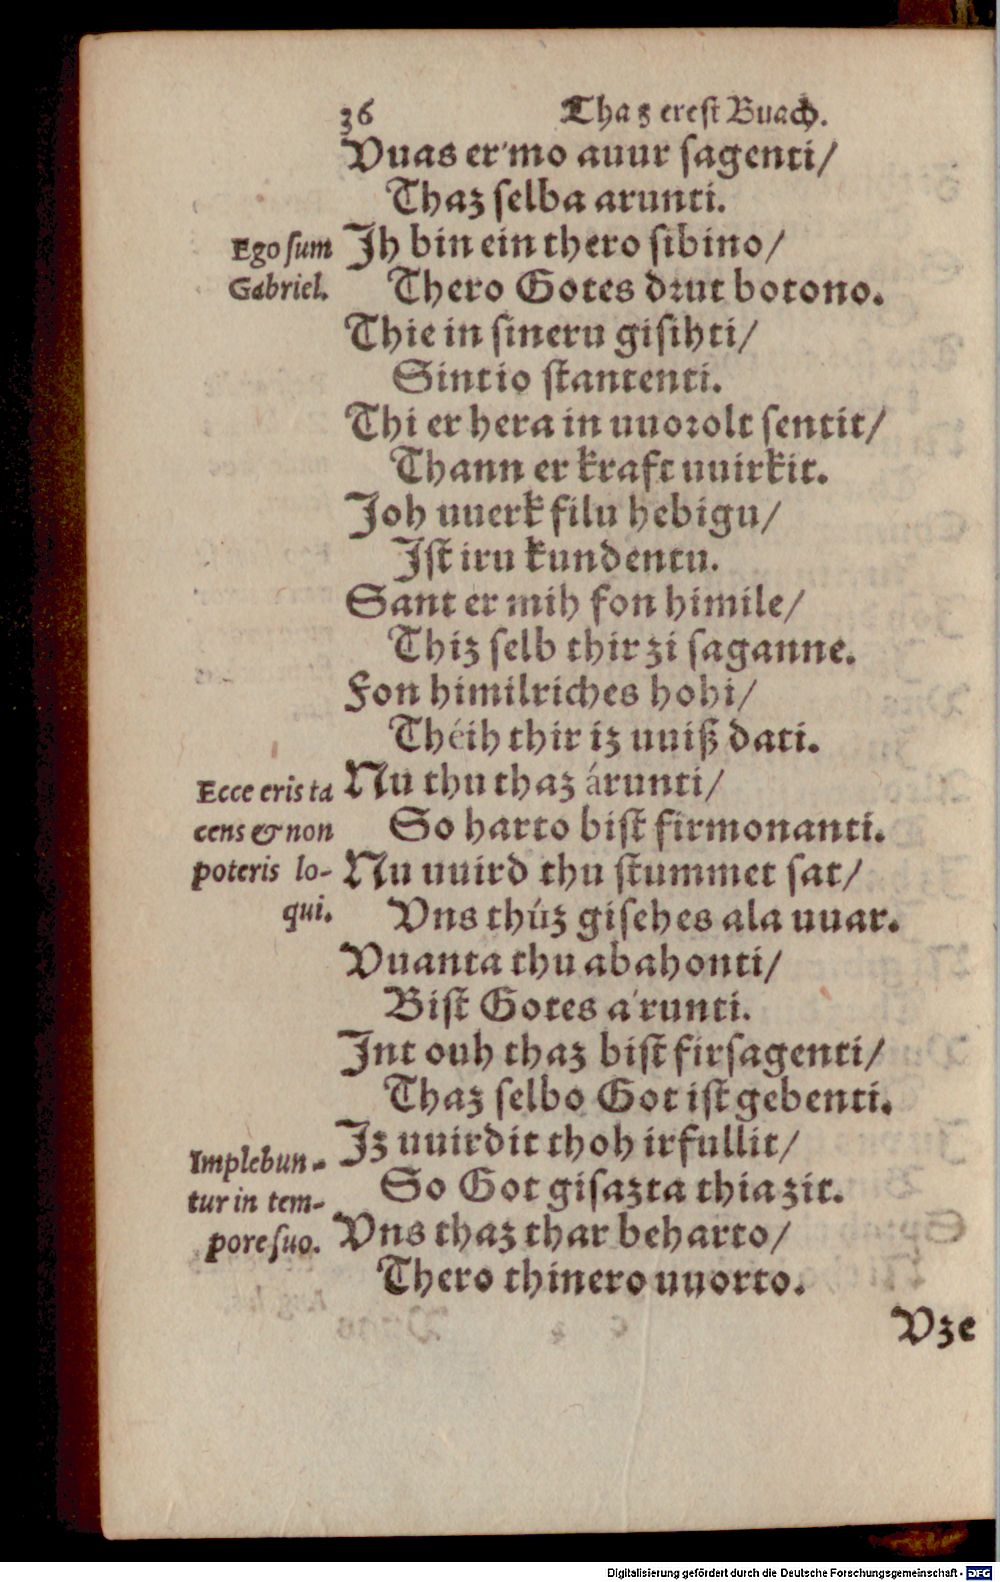 36 Thaz erest Buach.
Vuas er'mo auur sagenti/
Thaz selba arunti.
Ego sum
Gabriel.
Jh bin ein thero sibino/
Thero Gotes drut botono.
Thie in sineru gisihti/
Sintio stantenti.
Thi er hera in uuorolt sentit/
Thann er kraft uuirkit.
Joh uuerk filu hebigu/
Jst iru kundentu.
Sant er mih fon himile/
Thiz selb thir zi saganne.
Fon himilriches hohi/
Théih thir iz uuiß dati.
Ecce eris ta
cens & non
poteris lo-
qui.
Nu thu thaz árunti/
So harto bist firmonanti.
Nu uuird thu stummet sat/
Vns thúz gisehes ala uuar.
Vuanta thu abahonti/
Bist Gotes a'runti.
Jnt ouh thaz bist firsagenti/
Thaz selbo Got ist gebenti.
Implebun-
tur in tem-
pore suo.
Jz uuirdit thoh irfullit/
So Got gisazta thia zit.
Vns thaz thar beharto/
Thero thinero uuorto.
Vze
Digitalisierung gefördert durch die Deutsche Forschungsgemeinschaft - DFG